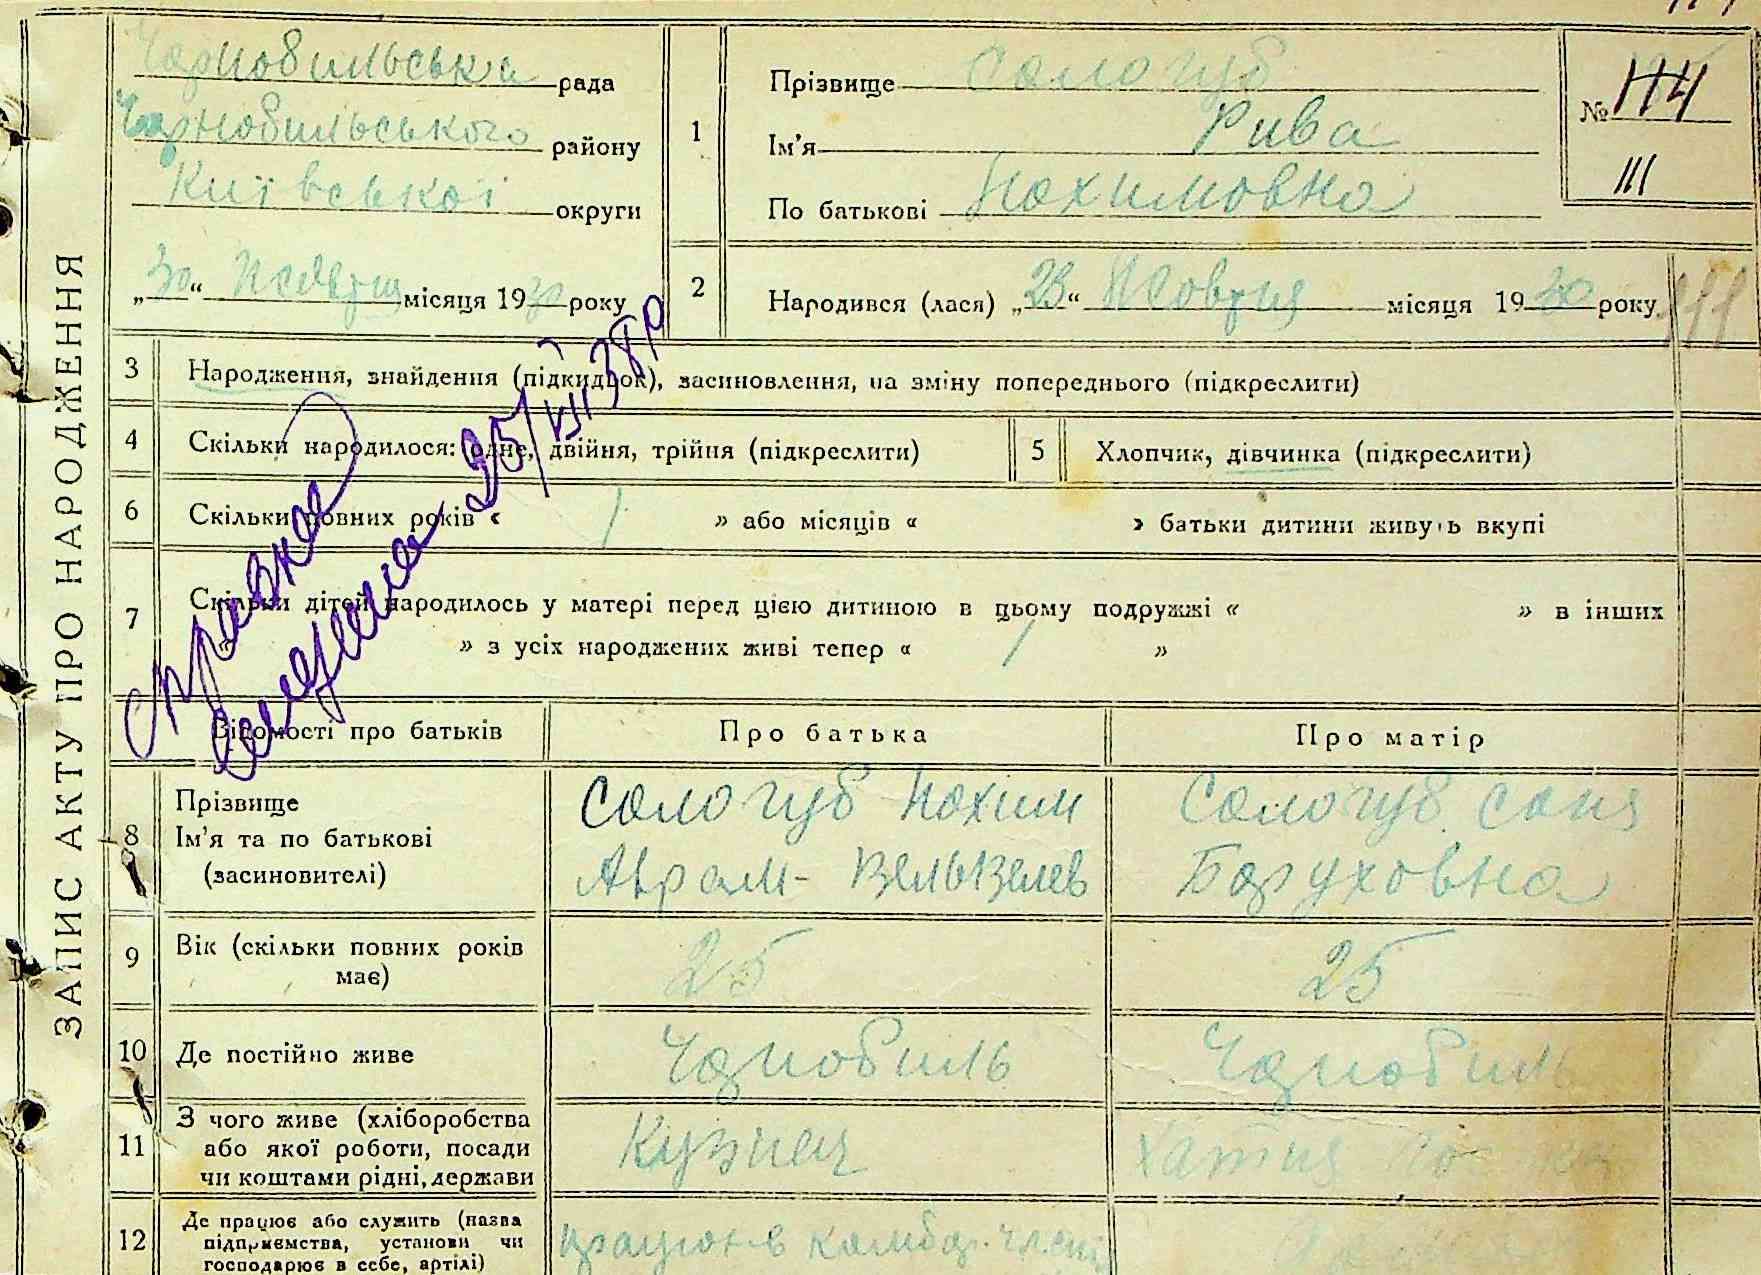 ЗАПИС АКТУ ПРО НАРОДЖЕННЯ
Чарнобильська рада
Чарнобильського району
Київської округи
„30“ Жовтня місяця 1930 року
1
Прізвище Сологуб
Ім’я Рива
По батькові Нохимовна
№ 174
111
2
Народився (лася) „23“ Жовтня місяця 1930 року
3 Народження, знайдення (підкидьок), засиновлення, на зміну попереднього (підкреслити)
4 Скільки народилося: одне, двійня, трійня (підкреслити)
5 Хлопчик, дівчинка (підкреслити)
6 Скільки повних років « 1 » або місяців « » батьки дитини живуть вкупі
7 Скільки дітей народилось у матері перед цією дитиною в цьому подружжі « » в інших
« » з усіх народжених живі тепер « 1 »
справка
25/VII 38 р
Відомості про батьків Про батька Про матір
8 Прізвище
Ім’я та по батькові
(засиновителі)
Сологуб Нохим
Аврам- Вельвелев
Сологуб Соня
Боруховна
9 Вік (скільки повних років
має)
25 25
10 Де постійно живе Чарнобиль Чарнобиль
11 З чого живе (хліборобства
або якої роботи, посади
чи коштами рідні, держави
Кузнец Хатня
12 Де працює або служить (назва
підприємства, установи чи
господарює в себе, артілі)
працює в